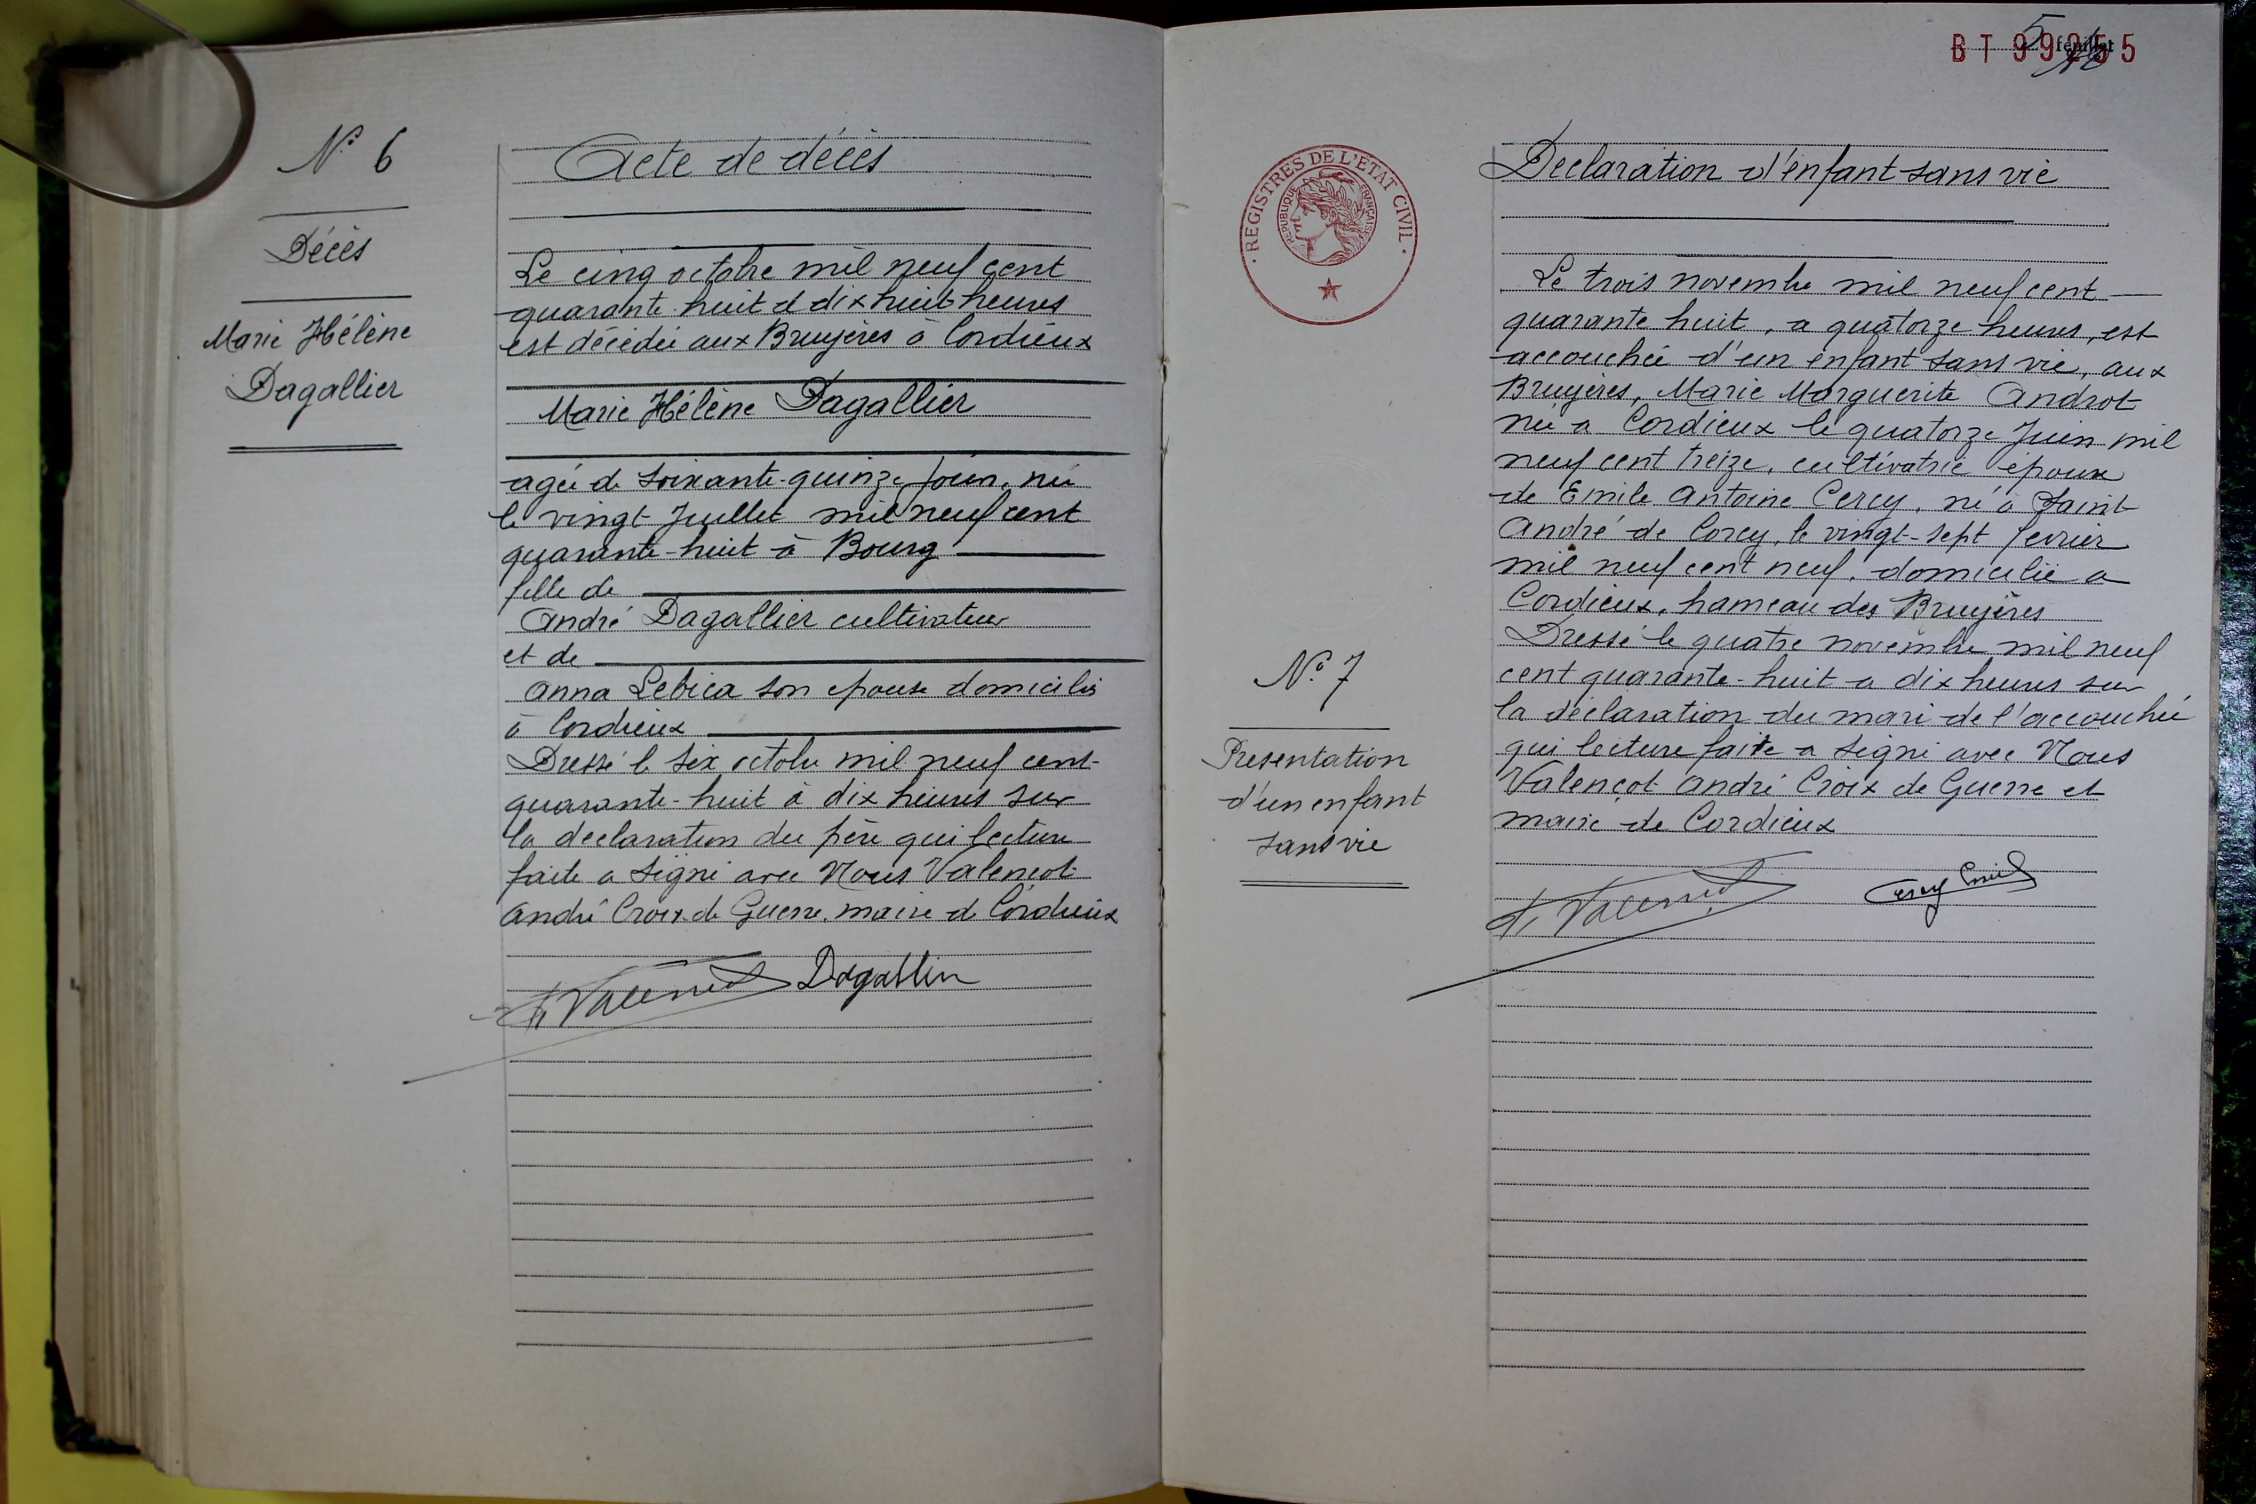 N° 6
Décès
Marie Hélène
Dagallier
Acte de décès
Le cinq octobre mil neuf cent
quarante-huit à dix huit heures
est décédée aux Bruyères à Cordieux
Marie Hélène Dagallier
agée de soixante-quinze jours, née
le vingt Juillet mil neuf cent
quarante-huit à Bourg
fille de
André Dagallier cultivateur
et de
Anna Lebica son epouse domiciliés
à Cordieux
Dressé le six octobre mil neuf cent
quarante-huit à dix heures sur
la declaration du père qui lecture
faite a signé avec Nous Valençot
André Croix de Guerre, maire de Cordieux
A. Valençot Dagallier
5 feuillet
BT 99255
REGISTRES DE L'ETAT CIVIL
REPUBLIQUE FRANÇAISE
N° 7
Presentation
d'un enfant
sans vie
Declaration d'enfant sans vie
Le trois novembre mil neuf cent
quarante huit, a quatorze heures, est
accouchée d'un enfant sans vie, aux
Bruyères, Marie Marguerite Androt
née a Cordieux le quatorze Juin mil
neuf cent treize, cultivatrice épouse
de Emile Antoine Cercy, né à Saint
André de Corcy, le vingt-sept fevrier
mil neuf cent neuf, domicilié a
Cordieux, hameau des Bruyères
Dressé le quatre novembre mil neuf
cent quarante-huit a dix heures sur
la déclaration du mari de l'accouchée
qui lecture faite a signé avec Nous
Valençot André Croix de Guerre et
maire de Cordieux
A. Valençot Cercy Emile